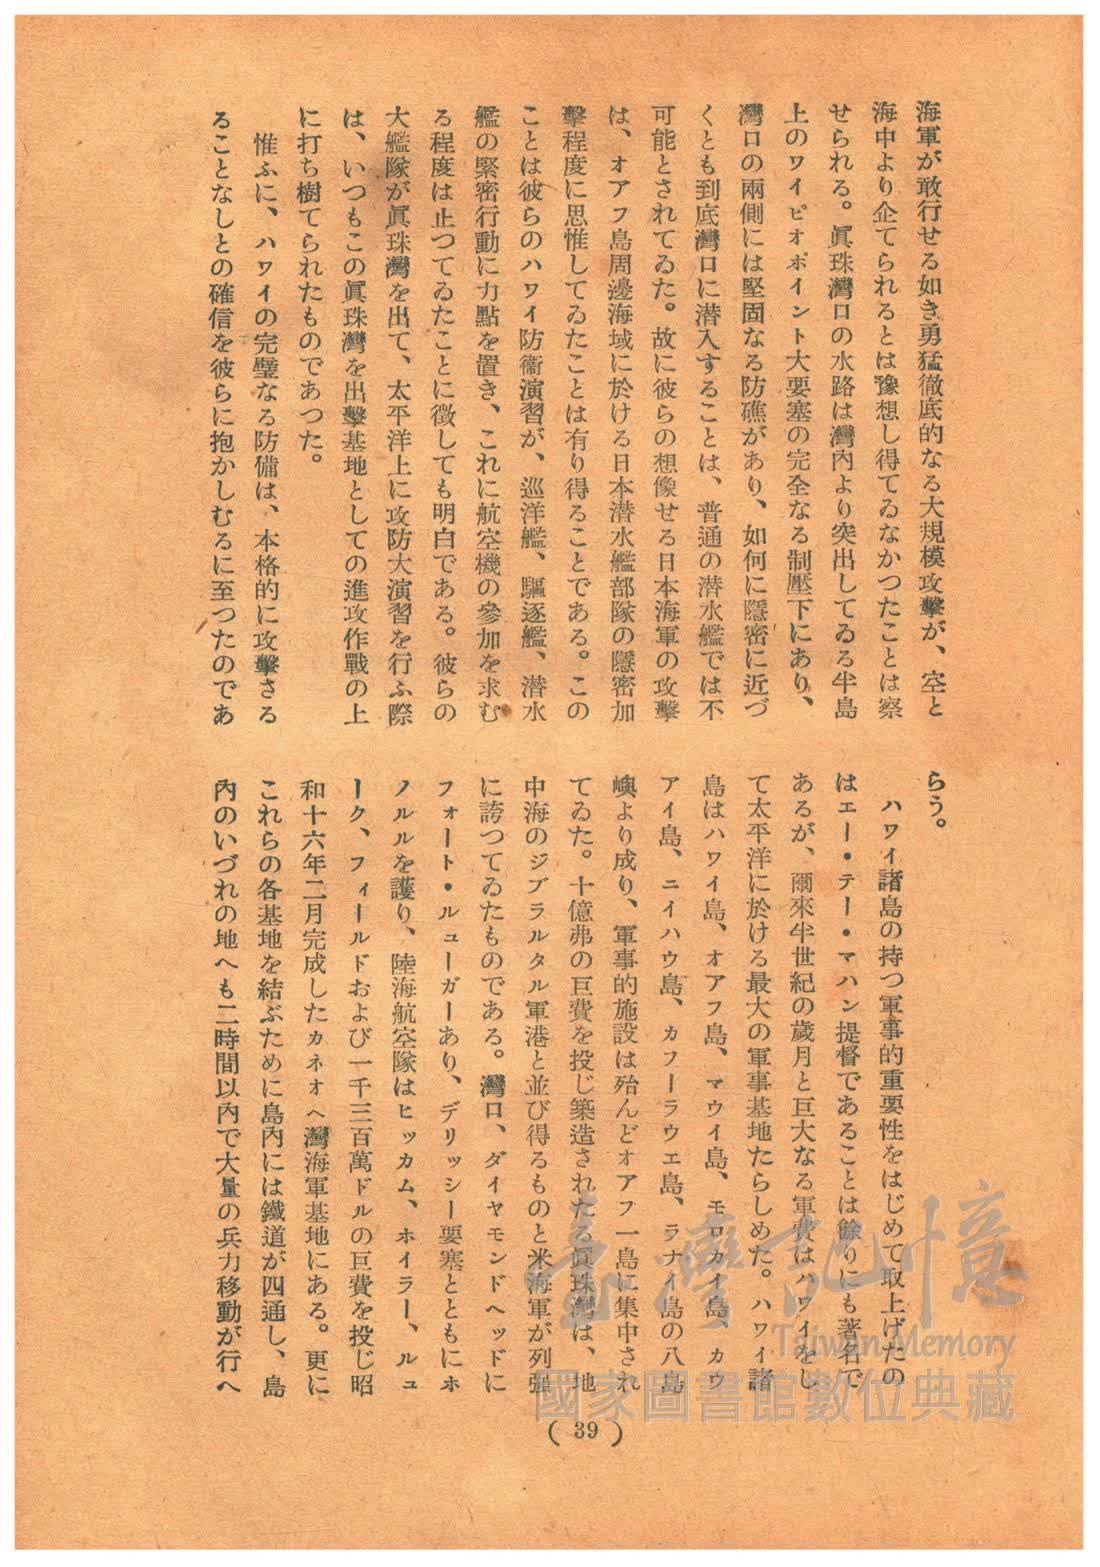 海軍が敢行せる如き勇猛徹底的なる大規模攻擊が、空と
海中より企てられるとは豫想し得てゐなかつたことは察
せられる。眞珠灣口の水路は灣內より突出してゐる半島
上のワイピオポイント大要塞の完全なる制壓下にあり、
灣口の兩側には堅固なる防礁があり、如何に隱密に近づ
くとも到底灣口に潜入することは、普通の潜水艦では不
可能とされてゐた。故に彼らの想像せる日本海軍の攻擊
は、オアフ島周邊海域に於ける日本潜水艦部隊の隱密加
擊程度に思惟してゐたことは有り得ることである。この
ことは彼らのハワイ防衞演習が、巡洋艦、驅逐艦、潜水
艦の緊密行動に力點を置き、これに航空機の參加を求む
る程度は止つてゐたことに徵しても明白である。彼らの
大艦隊が眞珠灣を出て、太平洋上に攻防大演習を行ふ際
は、いつもこの眞珠灣を出擊基地としての進攻作戰の上
に打ち樹てられたものであつた。
惟ふに、ハワイの完璧なる防備は、本格的に攻擊さる
ることなしとの確信を彼らに抱かしむるに至つたのであ
らう。
ハワイ諸島の持つ軍事的重要性をはじめて取上げたの
はエー・テー・マハン提督であることは餘りにも著名で
あるが、爾來半世紀の歲月と巨大なる軍費はハワイをし
て太平洋に於ける最大の軍事基地たらしめた。ハワイ諸
島はハワイ島、オアフ島、マウイ島、モロカイ島、カウ
アイ島、ニイハウ島、カフーラウエ島、ラナイ島の八島
嶼より成り、軍事的施設は殆んどオアフ一島に集中され
てゐた。十億弗の巨費を投じ築造されたる眞珠灣は、地
中海のジブラルタル軍港と並び得るものと米海軍が列强
に誇つてゐたものである。灣口、ダイヤモンドヘッドに
フォート・ルューガーあり、デリッシー要塞とともにホ
ノルルを護り、陸海航空隊はヒッカム、ホイラー、ルュ
ーク、フィールドおよび一千三百萬ドルの巨費を投じ昭
和十六年二月完成したカネオヘ灣海軍基地にある。更に
これらの各基地を結ぶために島內には鐵道が四通し、島
內のいづれの地へも二時間以內で大量の兵力移動が行へ
( 39 )
臺灣記憶
Taiwan Memory
國家圖書館數位典藏